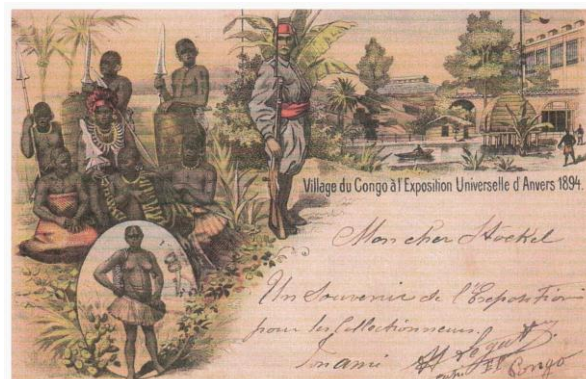 Village du Congo à l'Exposition Universelle d'Anvers 1894.
Mon cher Stockel
Un Souvenir de l'Exposition
pour les Collectionneurs.
Ton ami
Congo